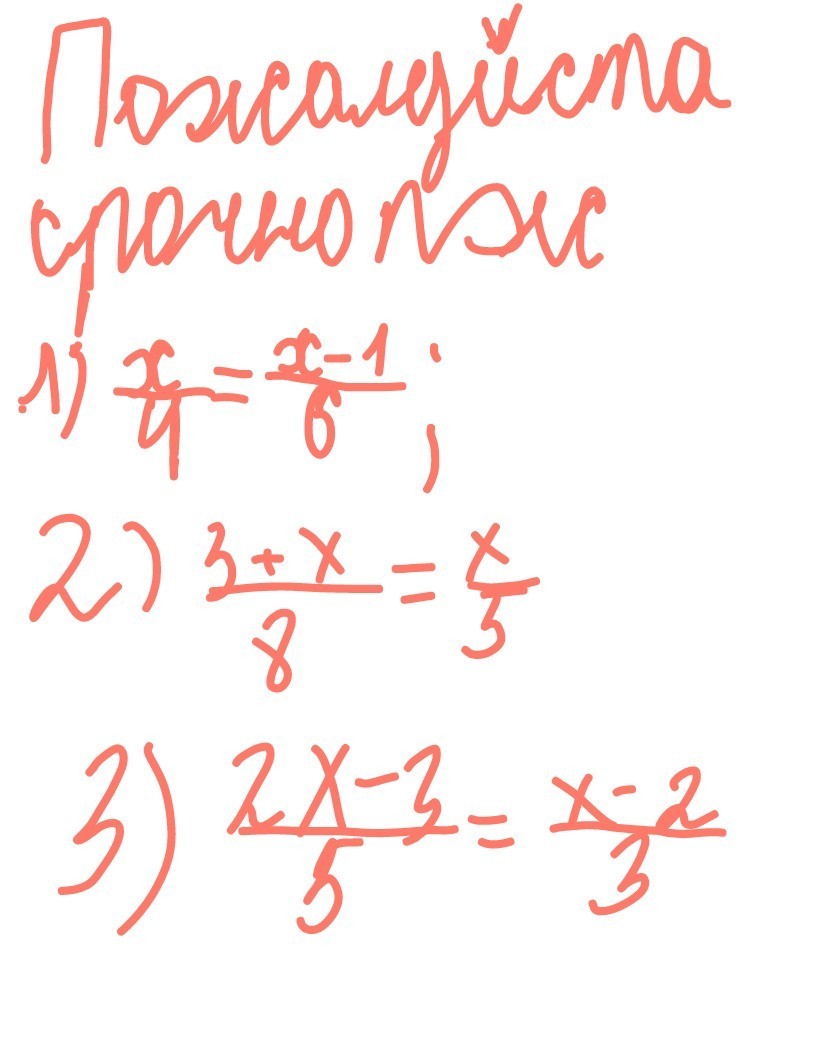 Пожалуйста
срочно пж
1) x/4 = x-1/6 ;
2) 3+x/8 = x/5
3) 2x-3/5 = x-2/3